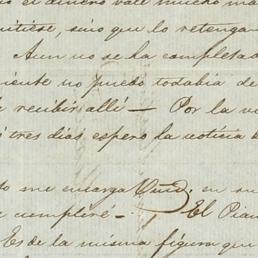 el dinero vale mucho ma
mitiese, sino que lo retengan
Aun no se ha completad
mente no puedo todabia de
recibir allí — Por la v
tres dias espero la noticia
to me encarga Vmd. en su
cumpliré — El Pian
Es de la misma figura que